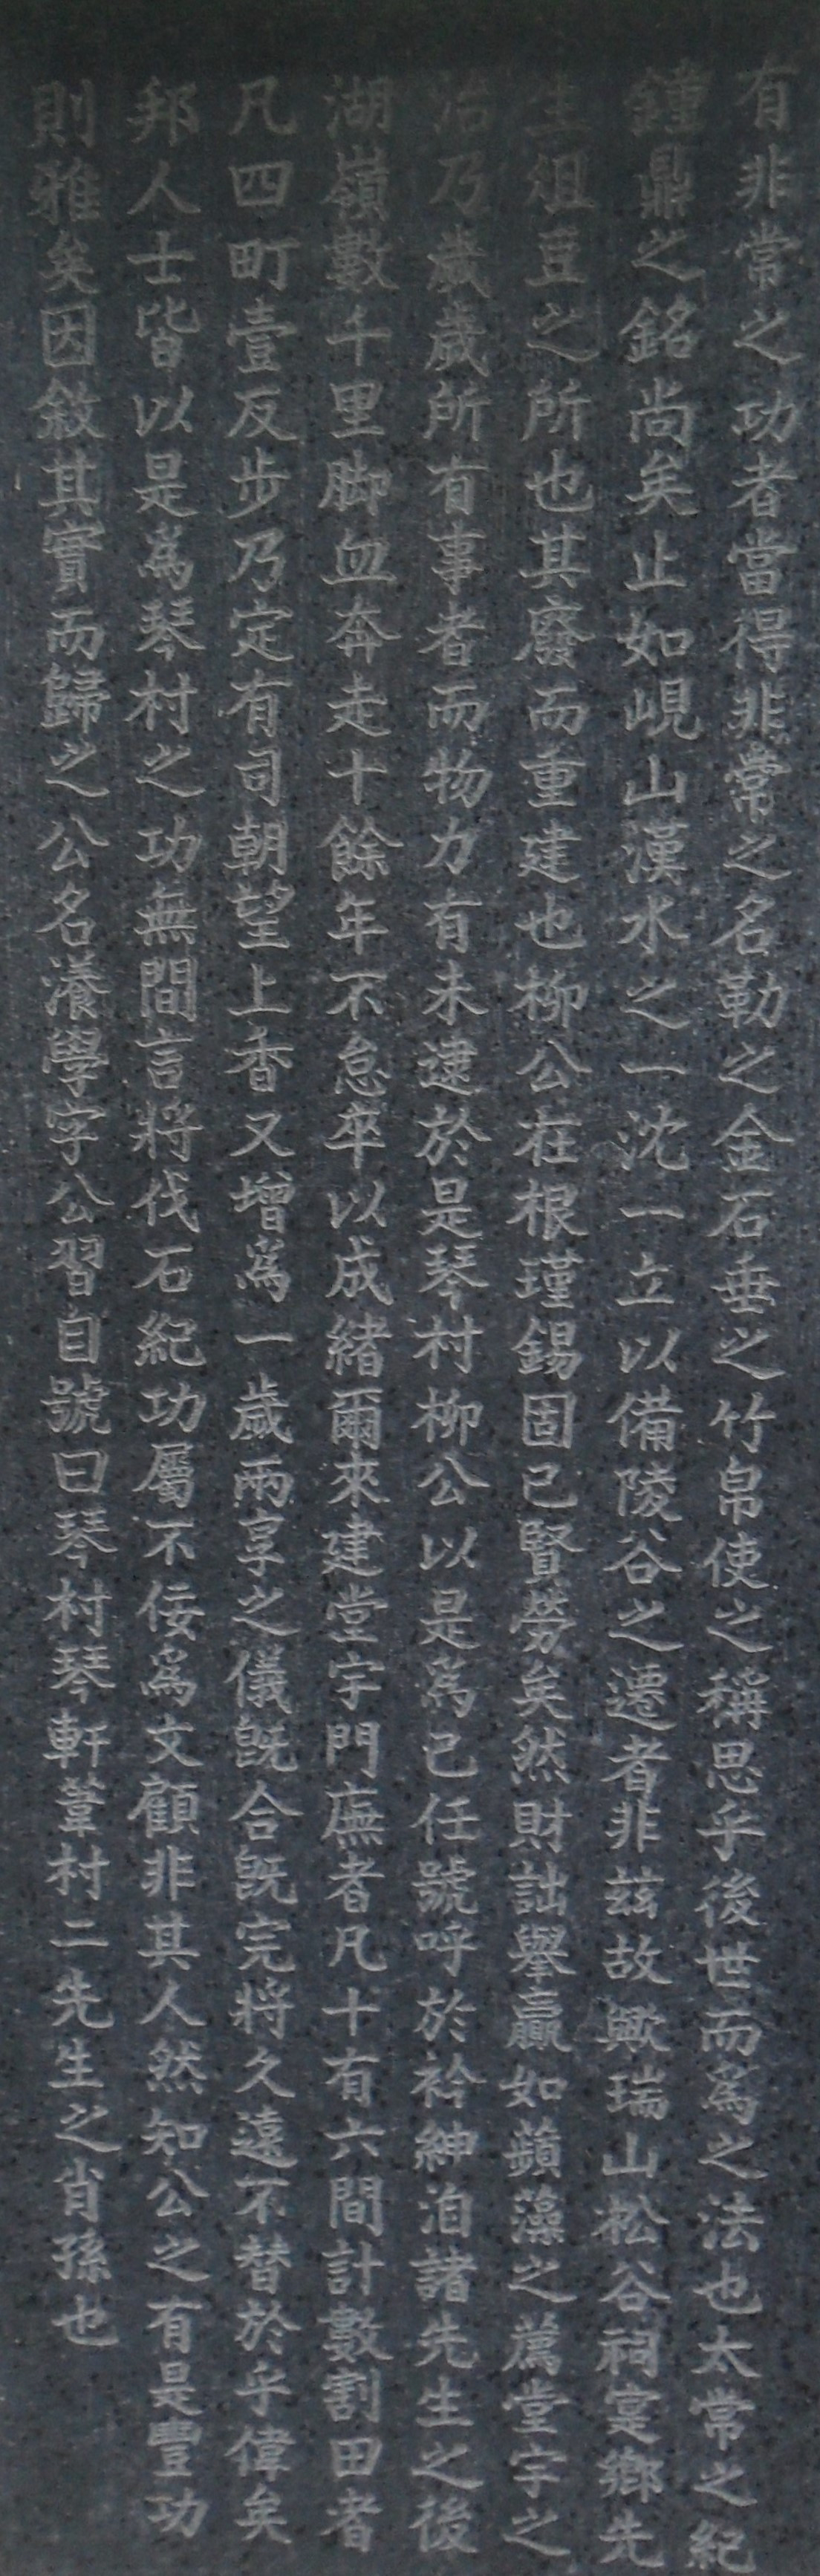 有非常之功者當得非常之名勒之金石垂之竹帛使之稱思乎後世而爲之法也太常之紀
鐘鼎之銘尚矣止如峴山漢水之一沈一立以備陵谷之遷者非茲故歟瑞山松谷祠寔鄕先
生俎豆之所也其廢而重建也柳公在根瑾錫固已賢勞矣然財詘擧贏如蘋藻之薦堂宇之
治乃歲歲所有事者而物力有未逮於是琴村柳公以是為己任號呼於衿紳洎諸先生之後
湖嶺數千里脚血奔走十餘年不怠卒以成緖爾來建堂宇門廡者凡十有六間計數割田者
凡四町壹反步乃定有司朝望上香又增爲一歲兩享之儀旣合旣完將久遠不替於乎偉矣
邦人士皆以是為琴村之功無間言將伐石紀功屬不佞爲文顧非其人然知公之有是豐功
則雅矣因敍其實而歸之公名濚學字公習自號曰琴村琴軒葦村二先生之肖孫也